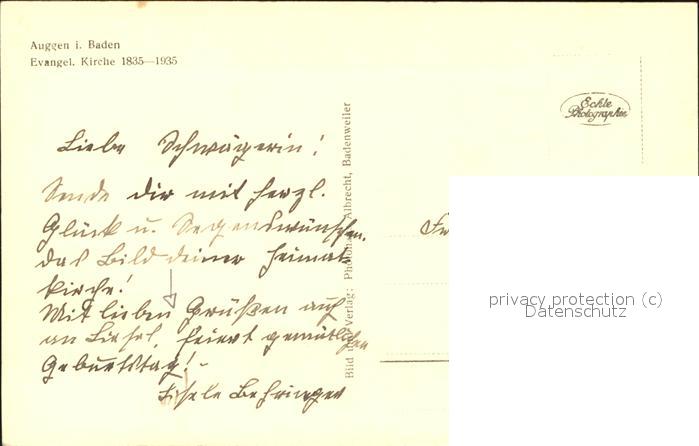 Auggen i. Baden
Evangel. Kirche 1835—1935
Echte
Photographie
Liebe Schwägerin!
Sende dir mit herzl.
Glück u. Segenswünschen.
das Bild deiner Heimat
kirche!
Mit lieben Grüßen auch
an Liesel, feiert gemütlichen
Geburtstag!-
Behringer
Albrecht, Badenweiler
Bild u. Verlag:
privacy protection (c)
Datenschutz